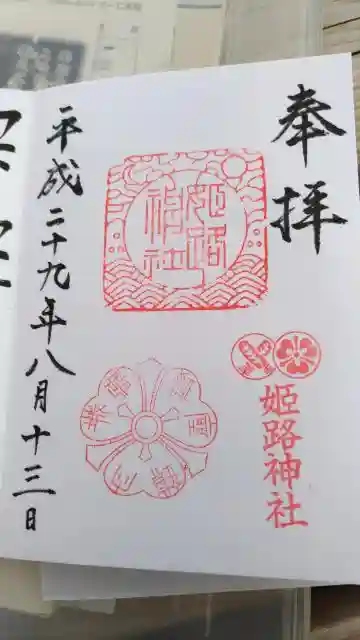 奉拝
姫路神社
姫路神社
平成二十九年八月十三日